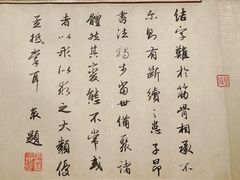 結字難於筋骨相承不
尔則有斷續之患子昂
書法獨步當世備諸
體然其變態不常或
者以形似求之大類優
孟抵掌耳 題